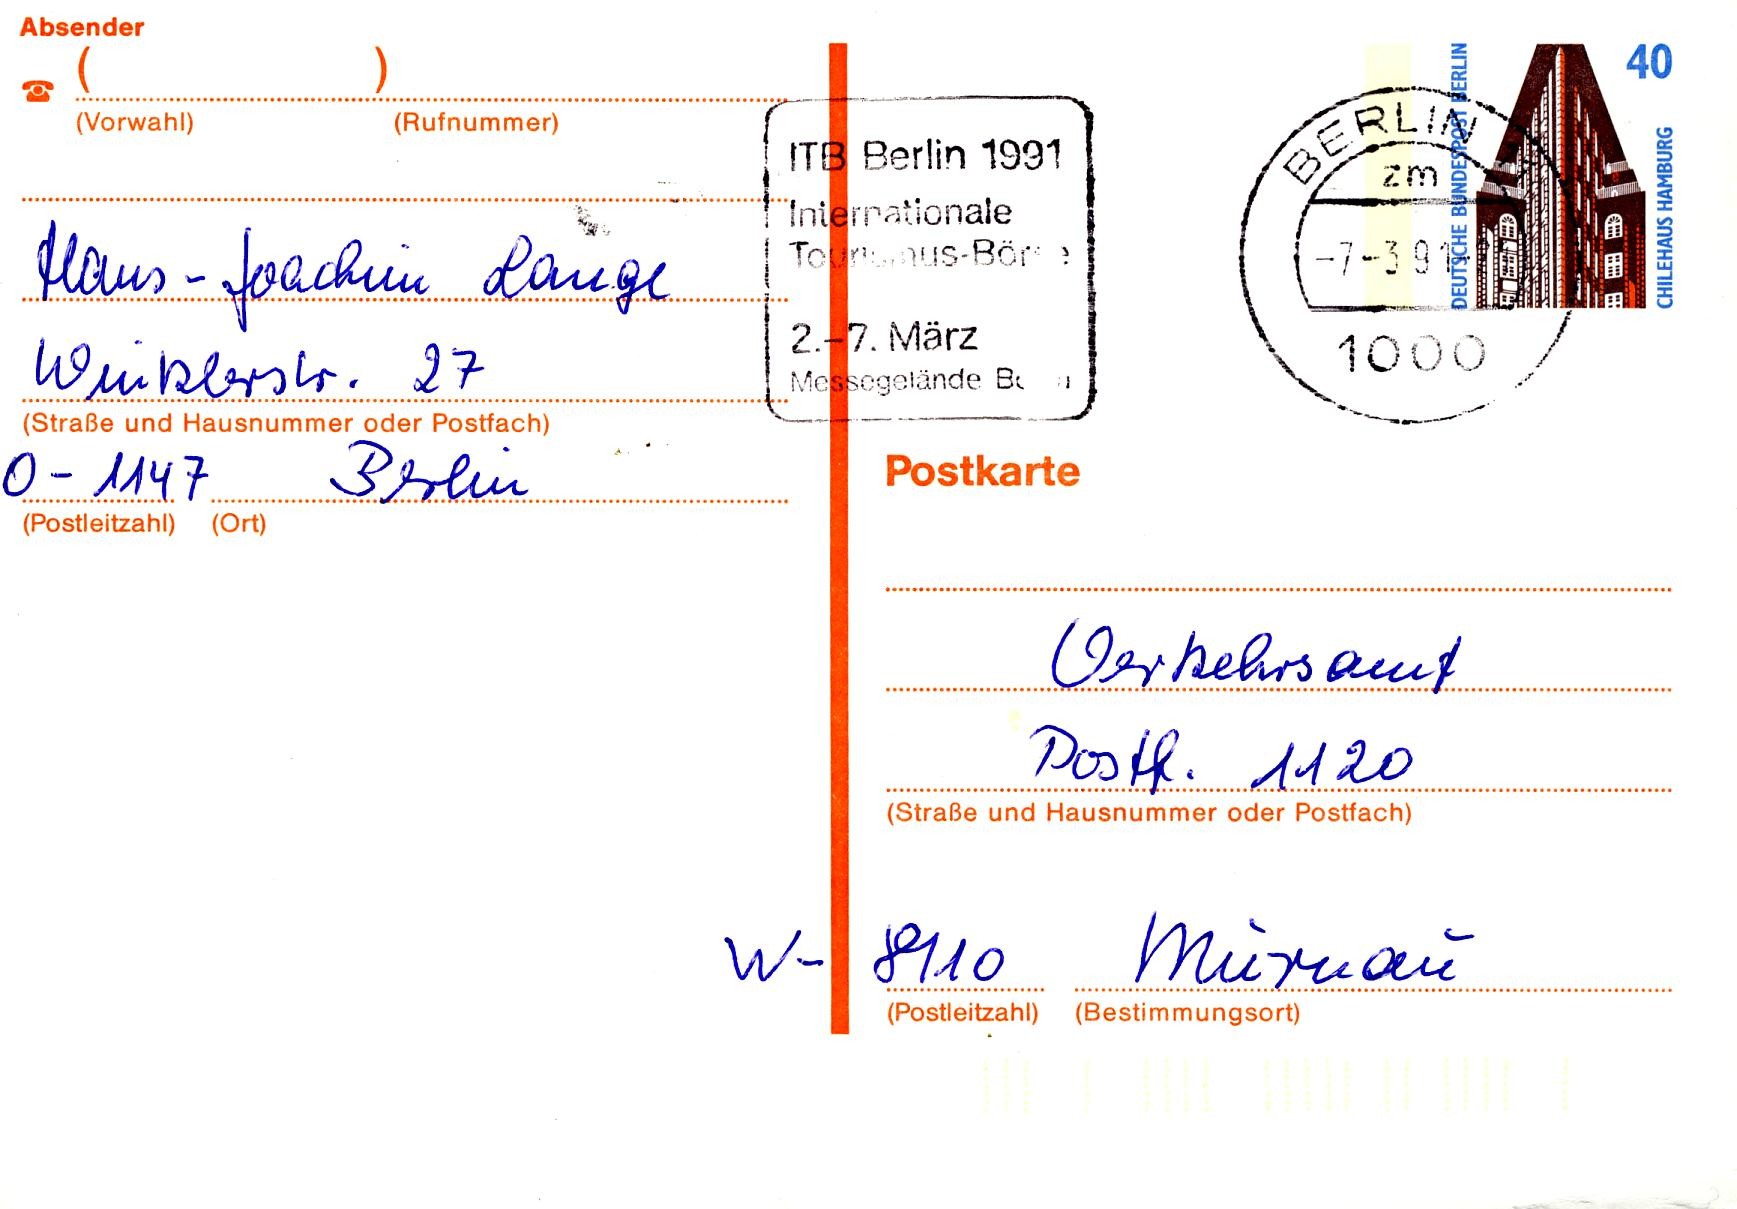 Absender
( )
(Vorwahl) (Rufnummer)
Hans-Joachim Lange
Winklerstr. 27
(Straße und Hausnummer oder Postfach)
O-1147 Berlin
(Postleitzahl) (Ort)
ITB Berlin 1991
Internationale
Tourismus-Börse
2.-7. März
Messegelände Berlin
BERLIN
zm
-7.-3.91
1000
DEUTSCHE BUNDESPOST BERLIN
40
CHILEHAUS HAMBURG
Postkarte
Verkehrsamt
Postf. 1120
(Straße und Hausnummer oder Postfach)
W- 8110 Murnau
(Postleitzahl) (Bestimmungsort)